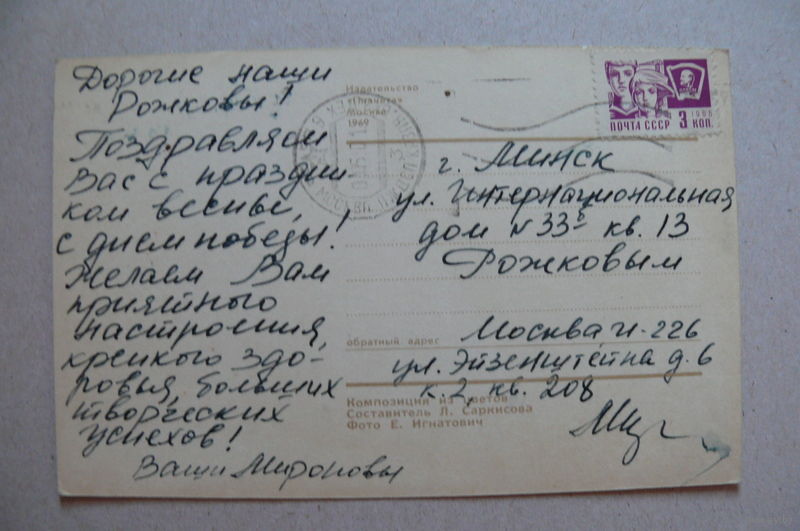 Дорогие наши
Рожковы!
Поздравляем
Вас с праздни-
ком весны,
с днем победы!
Желаем Вам
приятного
настроения,
крепкого здо-
ровья, больших
творческих
успехов!
Ваши Мироновы
Издательство
Москва
1969
ПОЧТА СССР 3 КОП.
1966
г. Минск
ул. Интернациональная
дом № 33 кв. 13
Рожковым
обратный адрес Москва И-226
ул. Эйзенштейна д. 6
к. 2, кв. 208
Композиция из цветов
Составитель Л. Саркисова
Фото Е. Игнатович